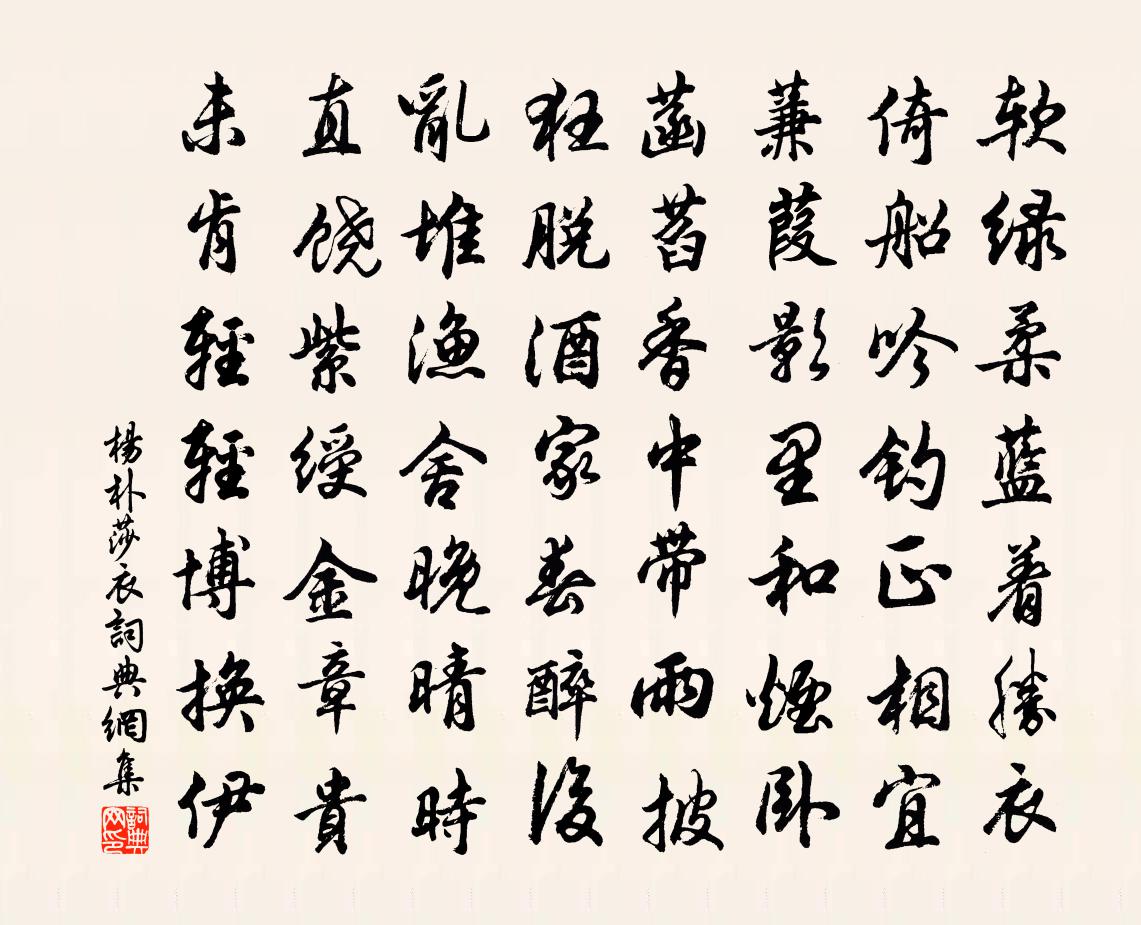 软绿柔蓝着胜衣
倚船吟钓正相宜
蒹葭影里和烟卧
菡萏香中带雨披
狂脱酒家春醉后
亂堆渔舍晚晴时
直饶紫绶金章貴
未肯輕輕博换伊
楊朴莎衣詞典網集
詞典
网印